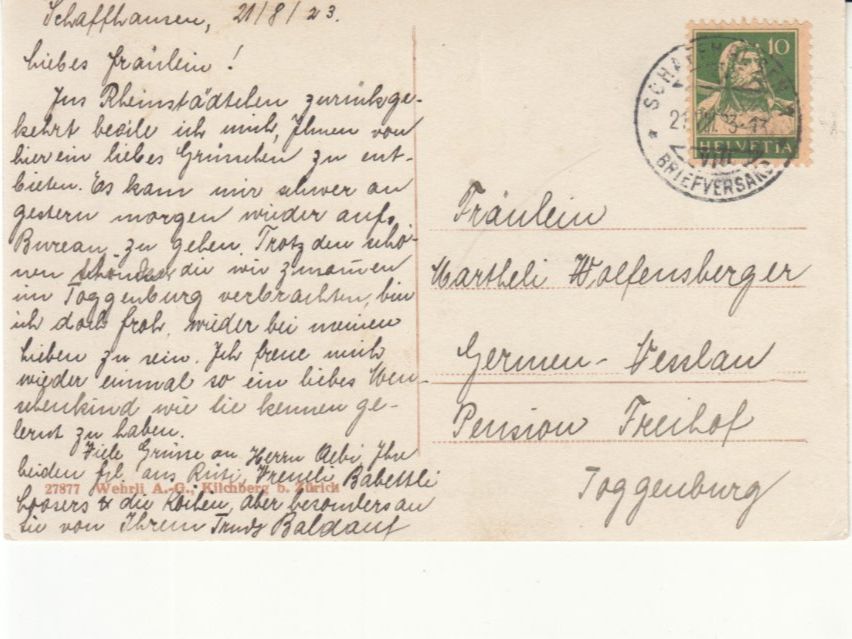 Schaffhausen, 21/8/23.
Liebes Fräulein!
Ins Rheinstädtchen zurückge-
kehrt beeile ich mich, Ihnen von
hier ein liebes Grüsschen zu ent-
bieten. Es kam mir schwer an
gestern morgen wieder aufs
Bureau zu gehen. Trotz den schö-
nen Stunden, die wir zusammen
im Toggenburg verbrachten, bin
ich doch froh, wieder bei meinen
Lieben zu sein. Ich freue mich
wieder einmal so ein liebes Men-
schenkind wie Sie kennen ge-
lernt zu haben.
Viele Grüsse an Herrn Aebi, Ihre
beiden frl. aus Rüti, Vreneli, Babettli
Loosers & die Köchen, aber besonders an
Sie von Ihrem Trudy Baldauf
27877 Wehrli A.-G., Kilchberg b. Zürich
10
HELVETIA
SCHAFFHAUSEN 1
21. VIII. 23-13
VIII
* BRIEFVERSAND
Fräulein
Martheli Wolfensberger
Germen-Nesslau
Pension Freihof
Toggenburg